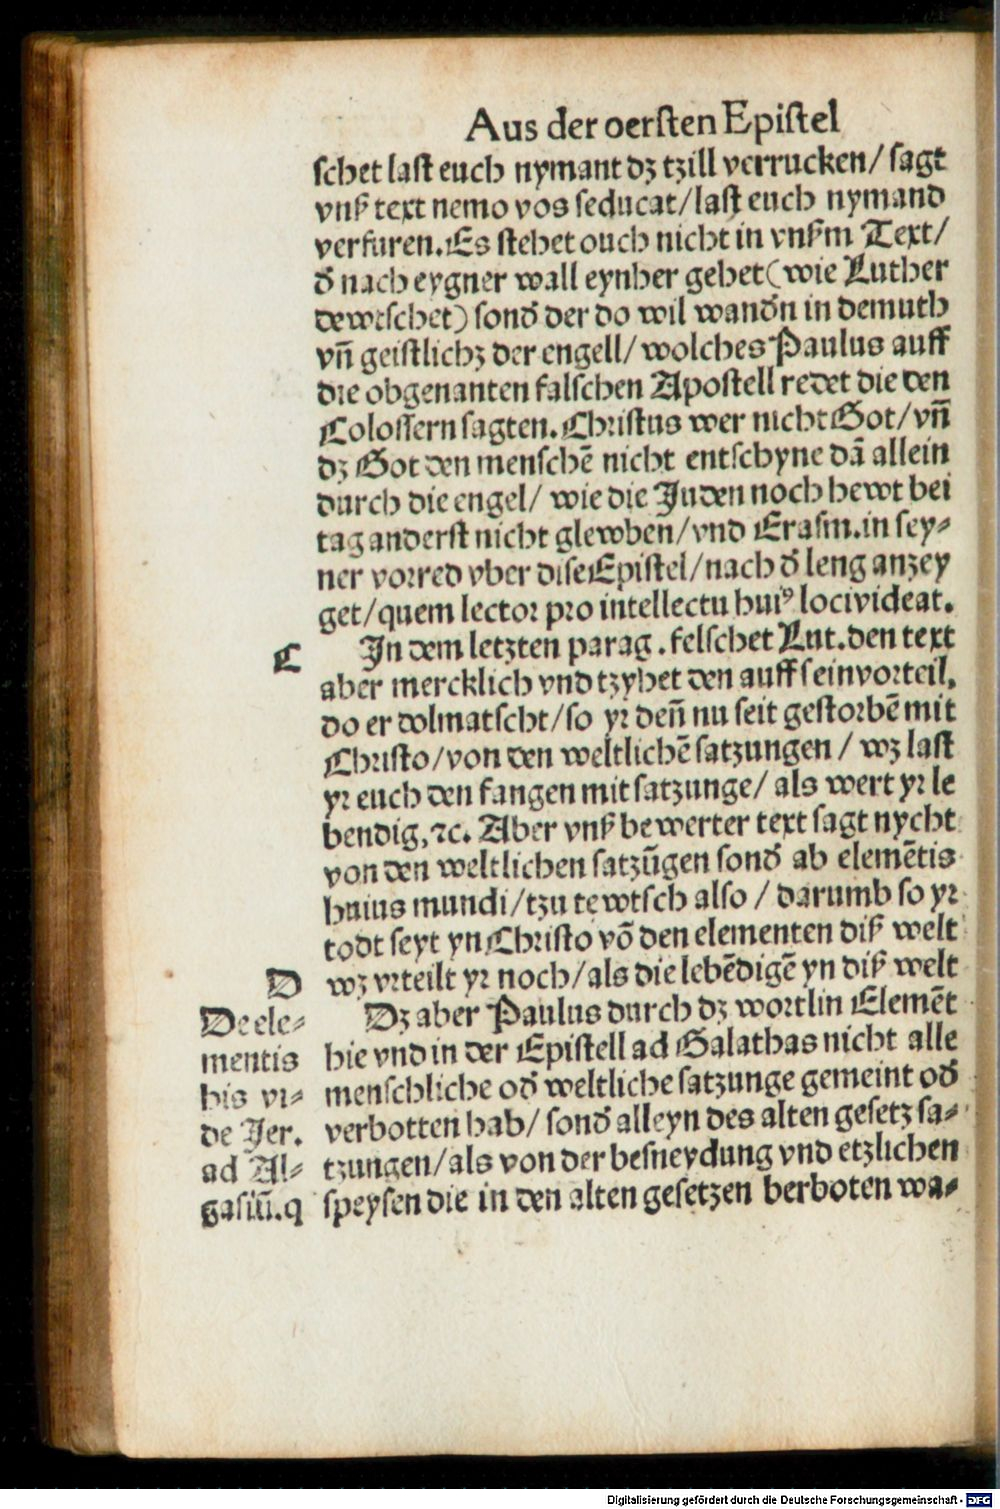 Aus der oersten Epistel
schet last euch nymant dz tzill verrucken/ sagt
vnß text nemo vos seducat/last euch nymand
verfuren. Es stehet ouch nicht in vnßm Text/
đ nach eygner wall eynher gehet (wie Luther
dewtschet) sonđ der do wil wanđn in demuth
vñ geistlichz der engell/ wolches Paulus auff
die obgenanten falschen Apostell redet die den
Colossern sagten. Christus wer nicht Got/vñ
dz Got den menschē nicht entschyne dā allein
durch die engel/ wie die Juden noch hewt bei
tag anderst nicht glewben/vnd Erasm. in sey-
ner vorred vber dise Epistel/nach đ leng anzey
get/quem lector pro intellectu huiꝰ loci videat.
C
In dem letzten parag. felschet Lut. den text
aber mercklich vnd tzyhet den auff sein vorteil,
do er dolmatscht/so yr deñ nu seit gestorbē mit
Christo/von den weltlichē satzungen/ wz last
yr euch den fangen mit satzunge/ als wert yr le
bendig,ꝛc. Aber vnß bewerter text sagt nycht
von den weltlichen satzūgen sonđ ab elemētis
huius mundi/tzu tewtsch also/ darumb so yr
todt seyt yn Christo vō den elementen diß welt
wz vrteilt yr noch/als die lebēdigē yn diß welt
D
De ele-
mentis
his vi-
de Jer.
ad Al-
gasiū. q
Dz aber Paulus durch dz wortlin Elemēt
hie vnd in der Epistell ad Galathas nicht alle
menschliche ođ weltliche satzunge gemeint ođ
verbotten hab/ sonđ alleyn des alten gesetz sa-
tzungen/als von der besneydung vnd etzlichen
speysen die in den alten gesetzen berboten wa-
Digitalisierung gefördert durch die Deutsche Forschungsgemeinschaft - DFG